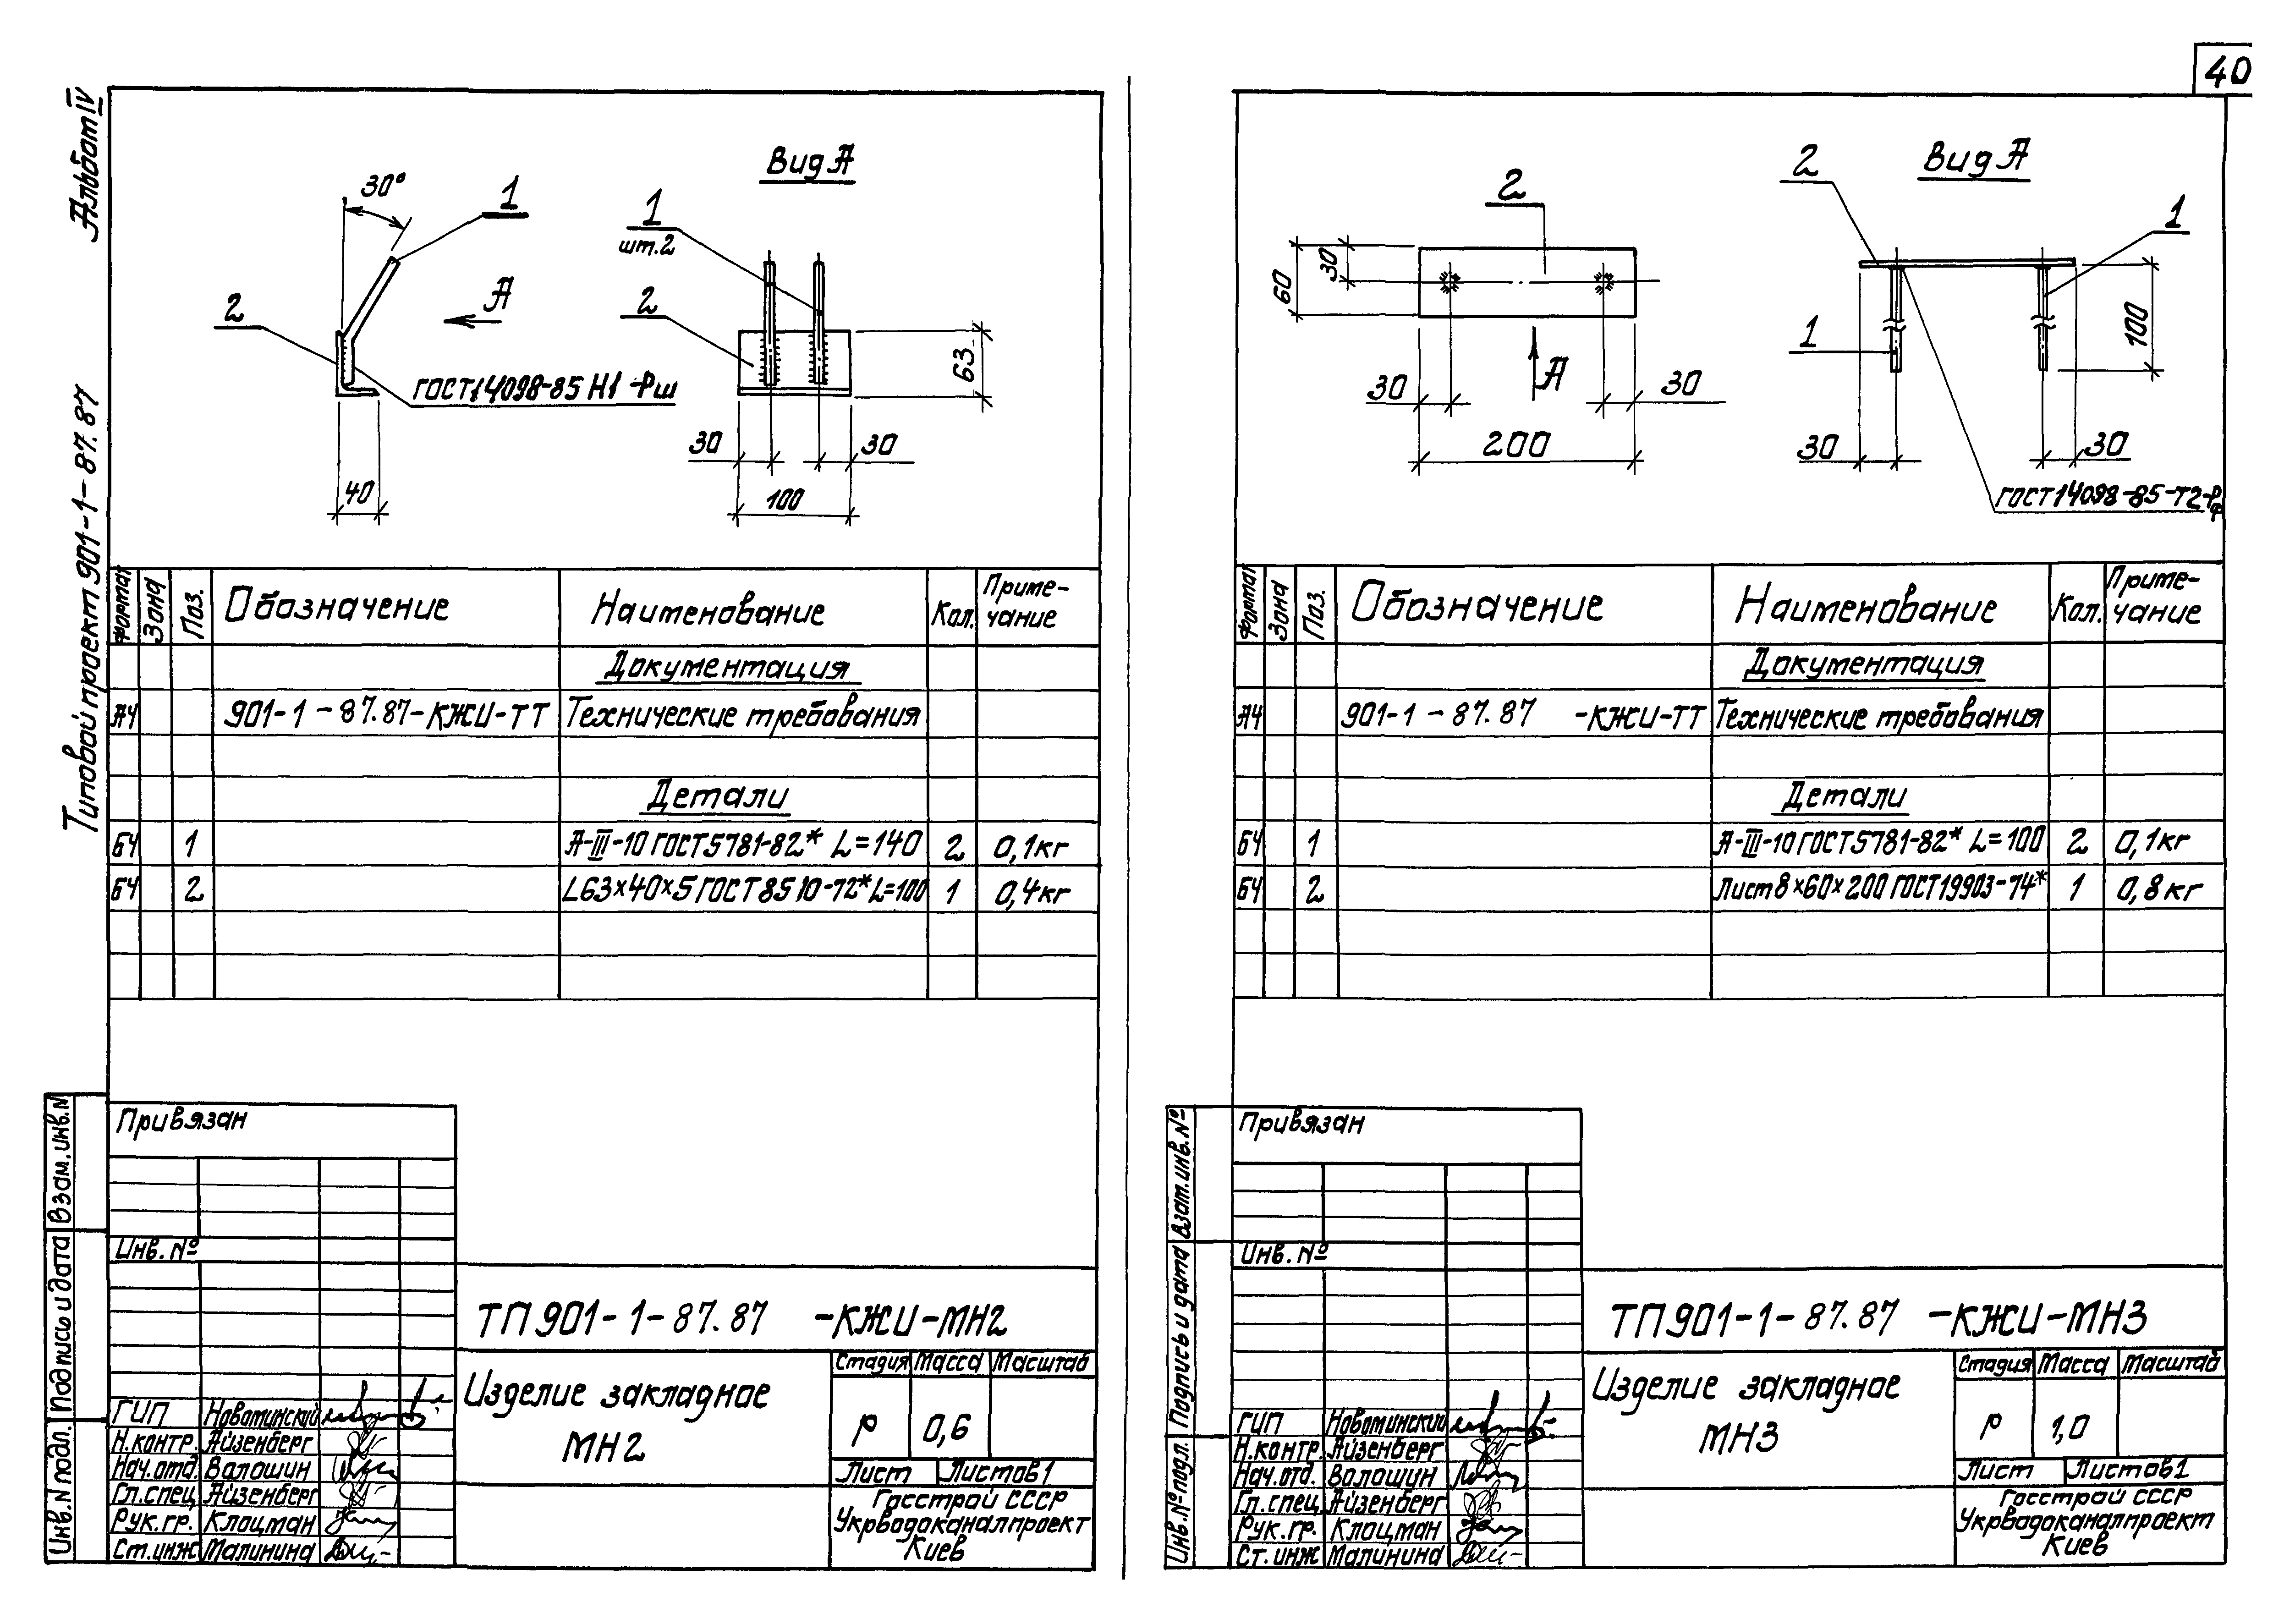 40
Альбом IV
Типовой проект 901-1-87.87
30°
1
2
А
ГОСТ 14098-85 Н1-Рш
40
Вид А
1
шт.2
2
63
30
30
100
Формат Зона Поз. Обозначение Наименование Кол. Приме-
чание
Документация
А4 901-1-87.87-КЖИ-ТТ Технические требования
Детали
БЧ 1 А-III-10 ГОСТ 5781-82* L=140 2 0,1кг
БЧ 2 L63×40×5 ГОСТ 8510-72* L=100 1 0,4кг
Взам. инв. N
Подпись и дата
Инв. N подл.
Привязан
Инв. №
ТП 901-1-87.87 -КЖИ-МН2
Изделие закладное
МН2
Стадия Масса Масштаб
Р 0,6
Лист Листов 1
Госстрой СССР
Укрводоканалпроект
Киев
ГИП Новоминский
Н.контр. Айзенберг
Нач.отд. Волошин
Гл.спец Айзенберг
Рук.гр. Клоцман
Ст.инж Малинина
2
60
30
А
30
30
200
Вид А
2
1
1
100
30
30
ГОСТ 14098-85-Т2-Рф
Формат Зона Поз. Обозначение Наименование Кол. Приме-
чание
Документация
А4 901-1-87.87 -КЖИ-ТТ Технические требования
Детали
БЧ 1 А-III-10 ГОСТ 5781-82* L=100 2 0,1кг
БЧ 2 Лист 8×60×200 ГОСТ 19903-74* 1 0,8кг
Взам. инв. №
Подпись и дата
Инв. № подл.
Привязан
Инв. №
ТП 901-1-87.87 -КЖИ-МН3
Изделие закладное
МН3
Стадия Масса Масштаб
Р 1,0
Лист Листов 1
Госстрой СССР
Укрводоканалпроект
Киев
ГИП Новоминский
Н.контр. Айзенберг
Нач.отд. Волошин
Гл.спец. Айзенберг
Рук.гр. Клоцман
Ст.инж Малинина